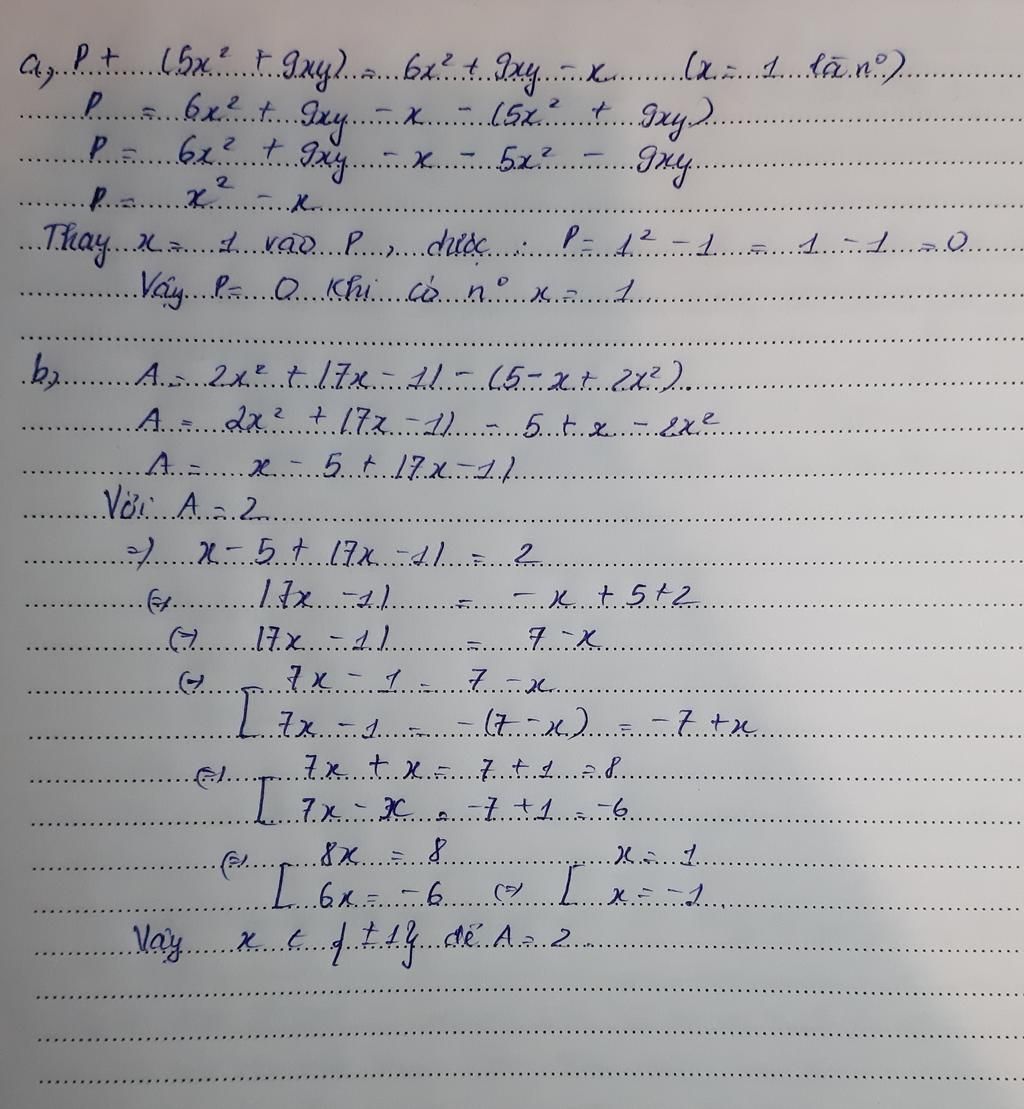 a, P + (5x² + 9xy) = 6x² + 9xy - x (x = 1 là n°)
P = 6x² + 9xy - x - (5x² + 9xy)
P = 6x² + 9xy - x - 5x² - 9xy
P = x² - x
Thay x = 1 vào P, được : P = 1² - 1 = 1 - 1 = 0
Vậy P = 0 khi có n° x = 1
b, A = 2x² + |7x - 1| - (5 - x + 2x²).
A = 2x² + |7x - 1| - 5 + x - 2x²
A = x - 5 + |7x - 1|
Với A = 2
=> x - 5 + |7x - 1| = 2
<=> |7x - 1| = - x + 5 + 2
<=> |7x - 1| = 7 - x
<=> [ 7x - 1 = 7 - x
7x - 1 = -(7 - x) = -7 + x
<=> [ 7x + x = 7 + 1 = 8
7x - x = -7 + 1 = -6
<=> [ 8x = 8 [ x = 1
6x = -6 <=> x = -1
Vậy x ∈ {±1} để A = 2